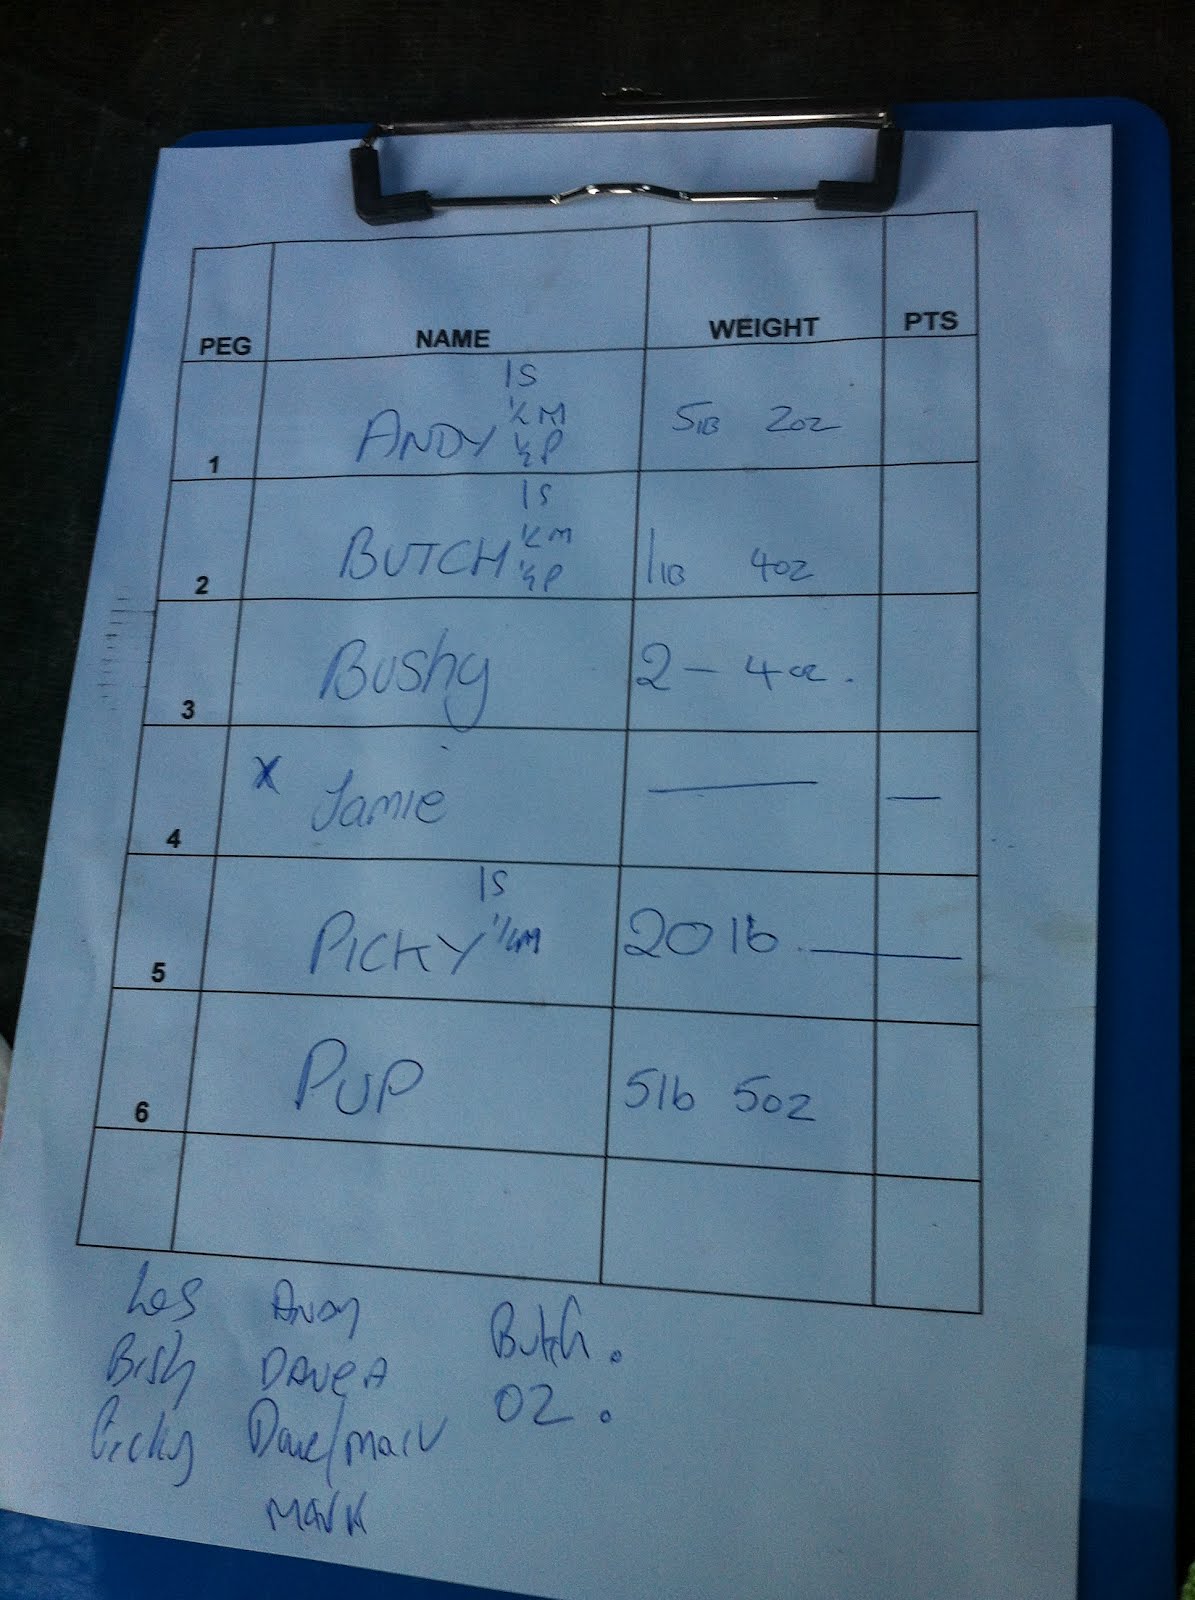 PEG NAME WEIGHT PTS
1S
½M
1 ANDY ½P 5LB 2oz
1S
½M
2 BUTCH ½P 1LB 4oz
3 Bushy 2 – 4oz.
4 X Jamie — —
1S
5 PICKY ½M 20lb. —
6 PUP 5lb 5oz
Les Andy Butch.
Bish DAVE A OZ.
Picky Dave/Marv
MARK